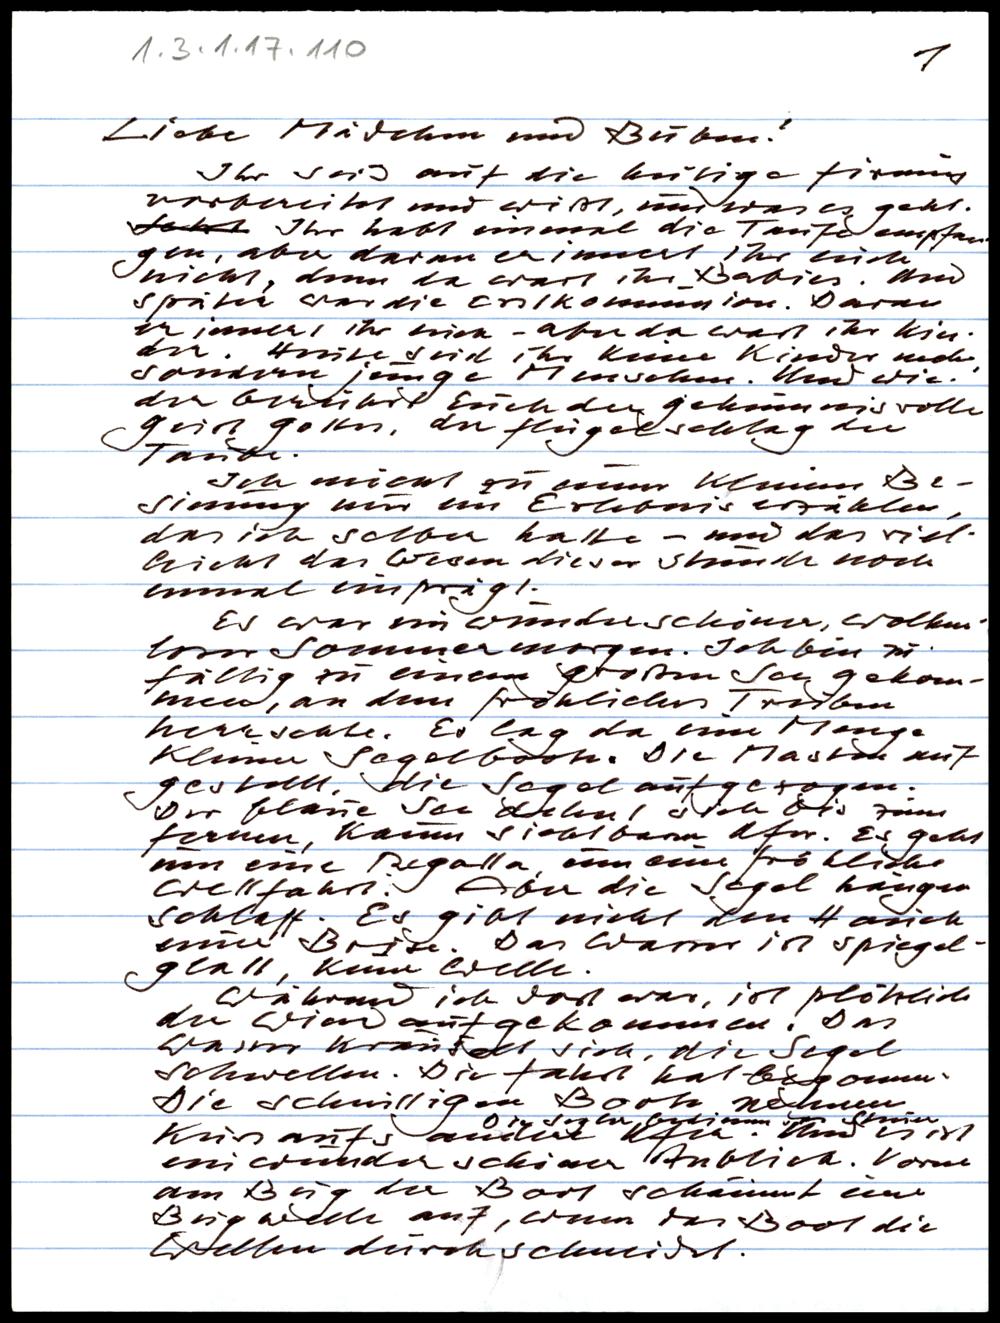 1.3.1.17.110
1
Liebe Mädchen und Buben!
Ihr seid auf die heilige Firmung
vorbereitet und wisst, um was es geht.
Ihr habt einmal die Taufe empfan-
gen, aber daran erinnert ihr euch
nicht, denn da wart ihr Babies. Und
später war die Erstkommunion. Daran
erinnert ihr euch - aber da wart ihr Kin-
der. Heute seid ihr keine Kinder mehr
sondern junge Menschen. Und wie-
der berührt Euch der geheimnisvolle
Geist Gottes, der Flügelschlag der
Taube.
Ich möcht zu einer kleinen Be-
sinnung nur ein Erlebnis erzählen,
das ich selber hatte - und das viel-
leicht das Wesen dieser Stunde noch
einmal einprägt.
Es war ein wunderschöner, wolken-
loser Sommermorgen. Ich bin zu-
fällig zu einem großen See gekom-
men, an dem fröhliches Treiben
herrschte. Es lag da eine Menge
kleiner Segelboote. Die Masten auf
gestellt, die Segel aufgezogen.
Der blaue See dehnt sich bis zum
fernen, kaum sichtbaren Ufer. Es geht
um eine Regatta, um eine fröhliche
Wettfahrt. Aber die Segel hängen
schlaff. Es gibt nicht den Hauch
einer Brise. Das Wasser ist spiegel-
glatt, keine Welle.
Während ich dort war, ist plötzlich
der Wind aufgekommen. Das
Wasser kräuselt sich, die Segel
schwellen. Die Fahrt hat begonnen.
Die schnittigen Boote nehmen
Die Segler bedienen das Steuer
Kurs aufs andere Ufer. Und es ist
ein wunderschöner Anblick. Vorne
am Bug der Boot schäumt eine
Bugwelle auf, wenn das Boot die
Wellen durchschneidet.